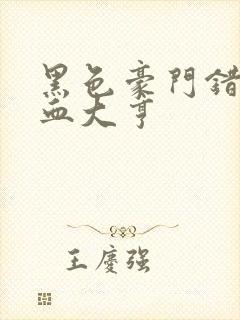 黑色豪門錯
血大亨
王慶強